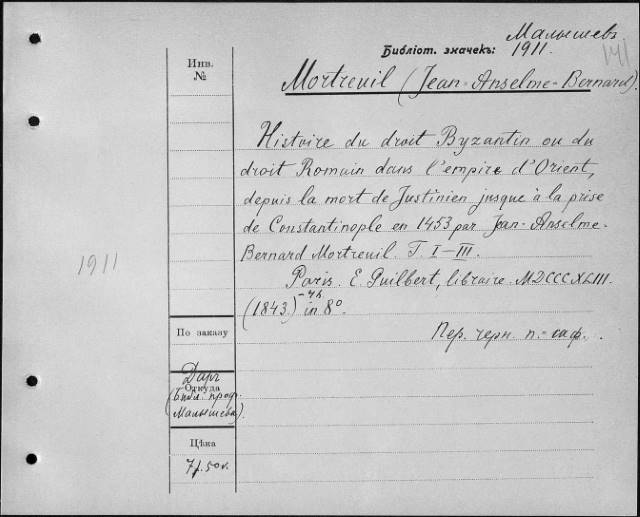 Малышевъ
Библіот. значекъ: 1911.
141
Инв.
№
Mortreuil (Jean-Anselme-Bernard).
Histoire du droit Byzantin ou du
droit Romain dans l'empire d'Orient,
depuis la mort de Justinien jusque à la prise
de Constantinople en 1453 par Jean-Anselme-
Bernard Mortreuil. T. I–III.
1911
Paris. E. Guilbert, libraire. MDCCCXLIII.
(1843.) in 8°.
По заказу
Пер. черн. п.-саф.
Даръ
Откуда
(Библ. проф.
Малышева).
Цѣна